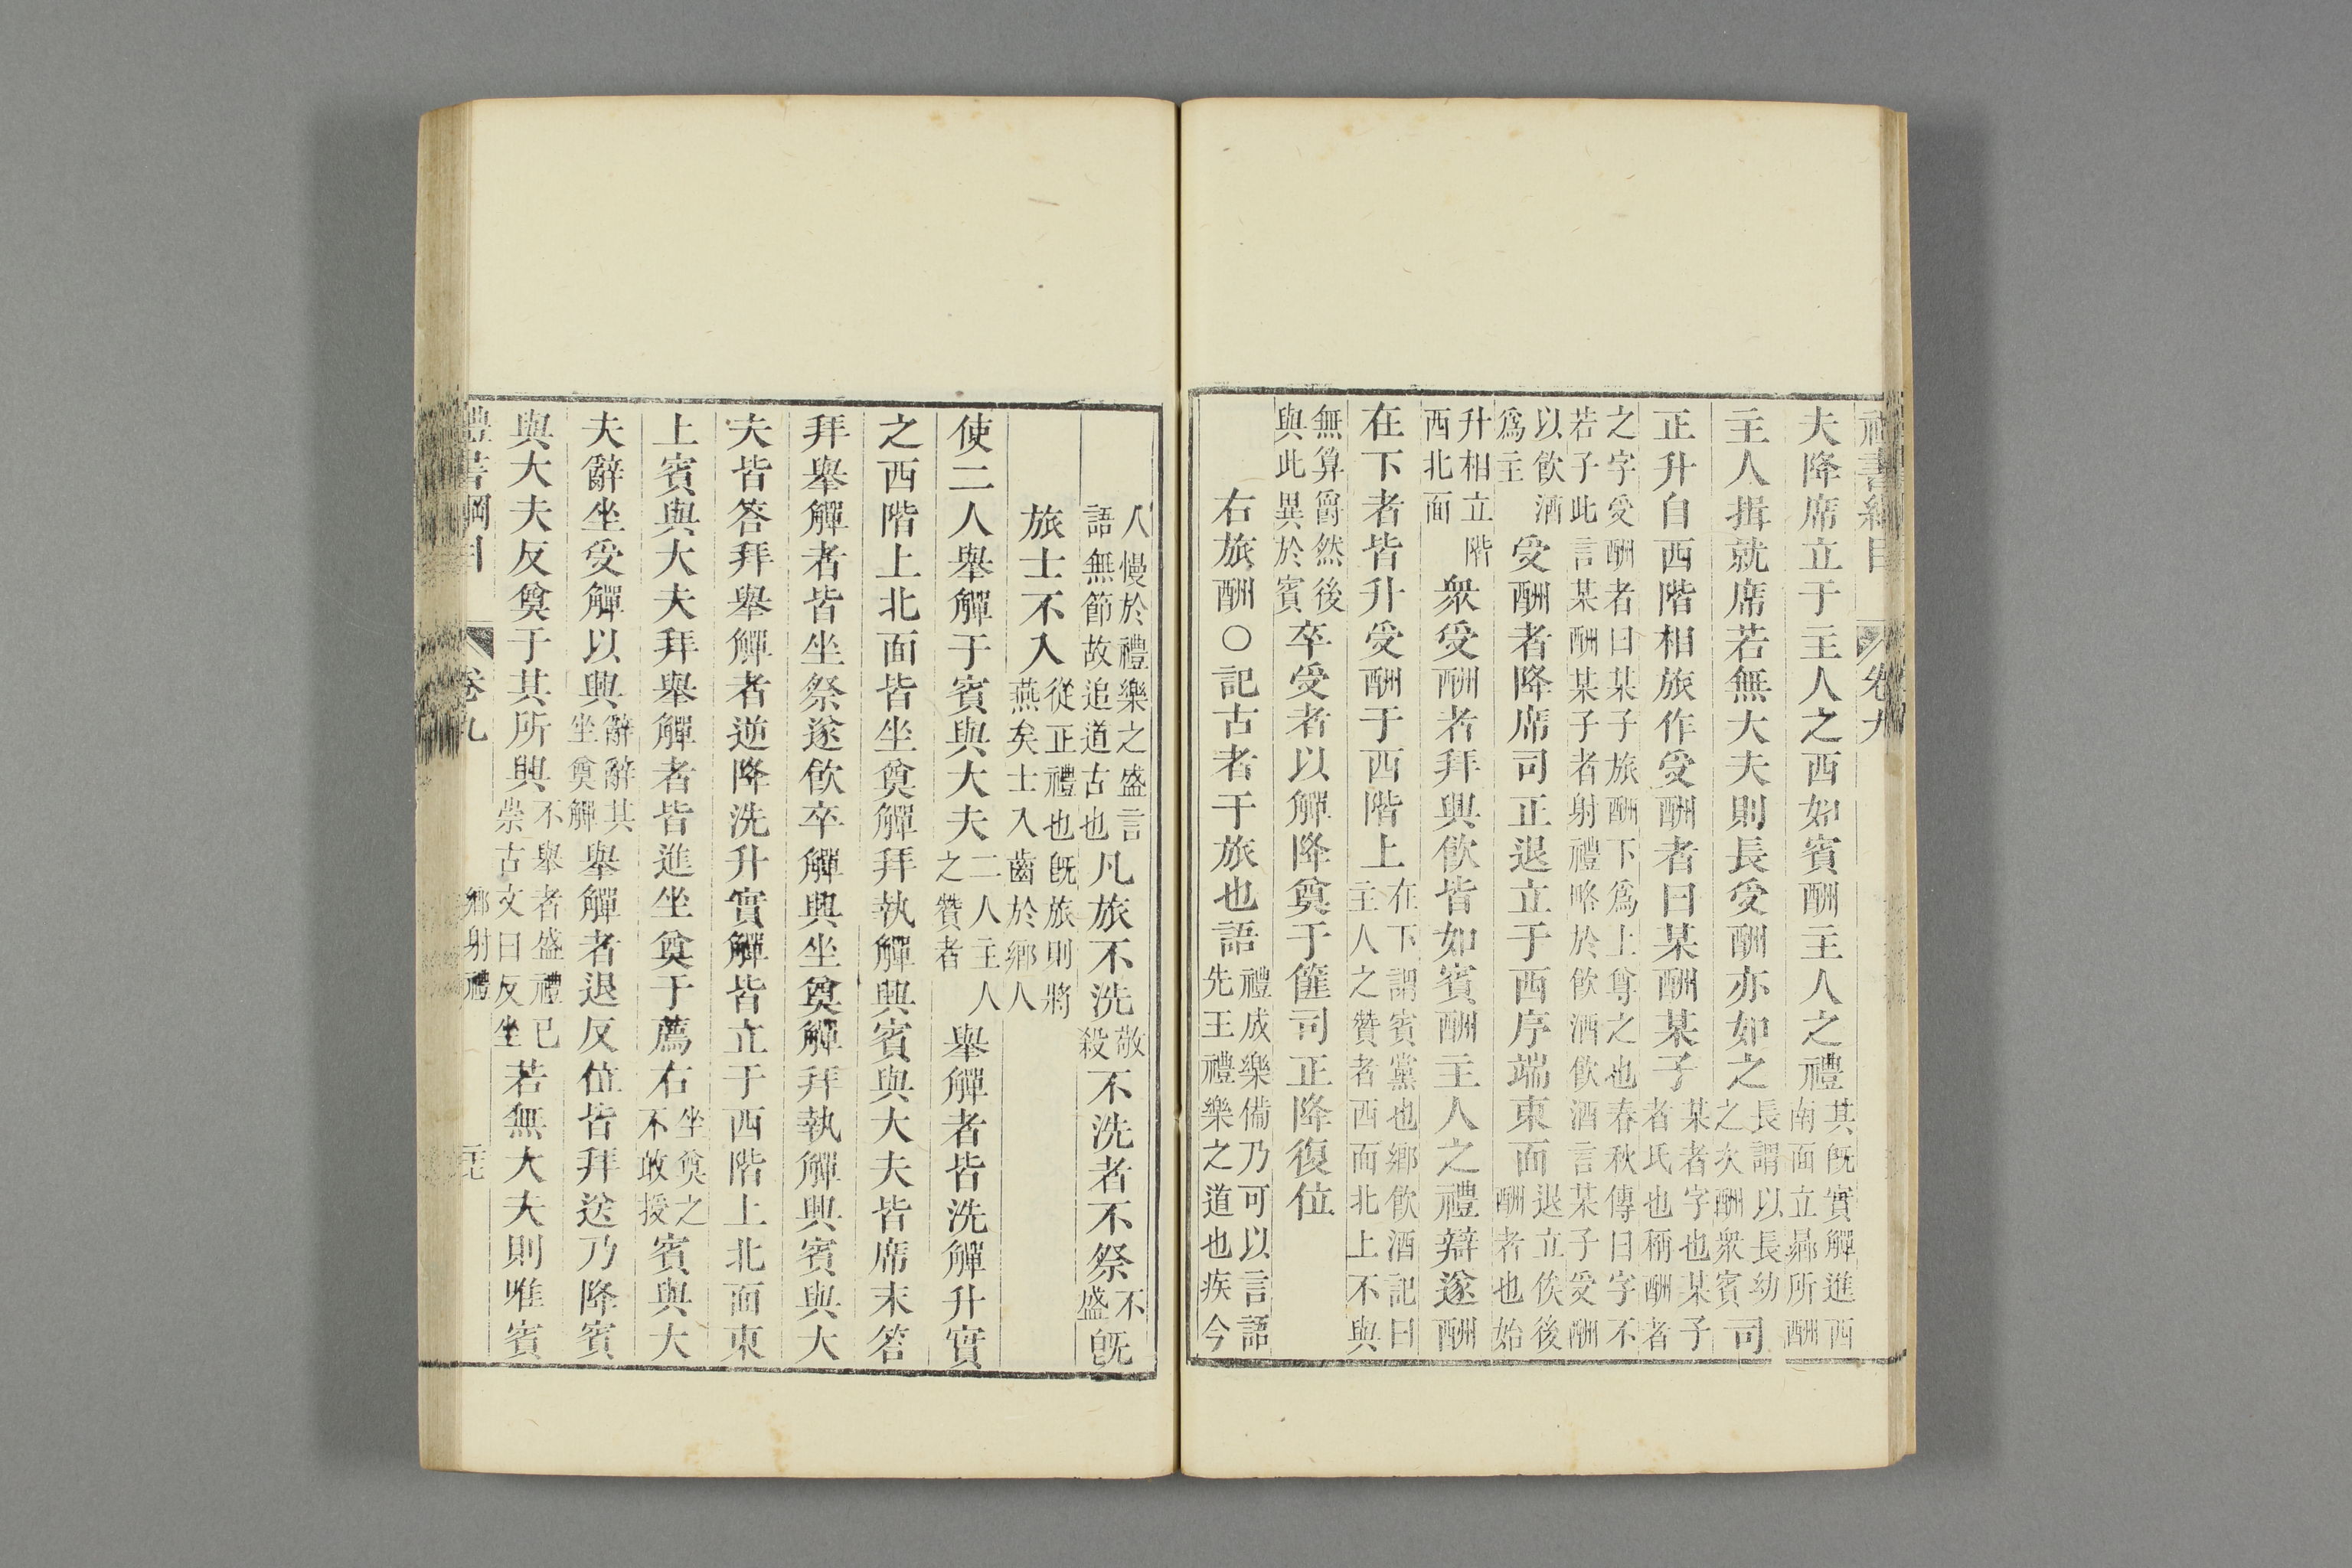 禮書綱目 卷九
夫降席立于主人之西如賓酬主人之禮其既實觶進西南面立鄉所酬
主人揖就席若無大夫則長受酬亦如之長謂以長幼之次酬衆賓司
正升自西階相旅作受酬者曰某酬某子某者字也某子者氏也稱酬者
之字受酬者曰某子旅酬下爲上尊之也春秋傳曰字不若子此言某酬某子者射禮略於飲酒飲酒言某子受酬
以飲酒爲主受酬者降席司正退立于西序端東面退立俟後酬者也始
升相立階西北面衆受酬者拜興飲皆如賓酬主人之禮辯遂酬
在下者皆升受酬于西階上在下謂賓黨也鄉飲酒記曰主人之贊者西面北上不與
無算爵然後與此異於賓卒受者以觶降奠于篚司正降復位
右旅酬○記古者于旅也語禮成樂備乃可以言語先王禮樂之道也疾今
人慢於禮樂之盛言語無節故追道古也凡旅不洗敬殺不洗者不祭不盛既
旅士不入從正禮也既旅則將燕矣士入齒於鄉人
使二人舉觶于賓與大夫二人主人之贊者舉觶者皆洗觶升實
之西階上北面皆坐奠觶拜執觶興賓與大夫皆席末答
拜舉觶者皆坐祭遂飲卒觶興坐奠觶拜執觶興賓與大
夫皆答拜舉觶者逆降洗升實觶皆立于西階上北面東
上賓與大夫拜舉觶者皆進坐奠于薦右坐奠之不敢授賓與大
夫辭坐受觶以興辭辭其坐奠觶舉觶者退反位皆拜送乃降賓
與大夫反奠于其所興不舉者盛禮已崇古文曰反坐若無大夫則唯賓
禮書綱目 卷九 鄉射禮